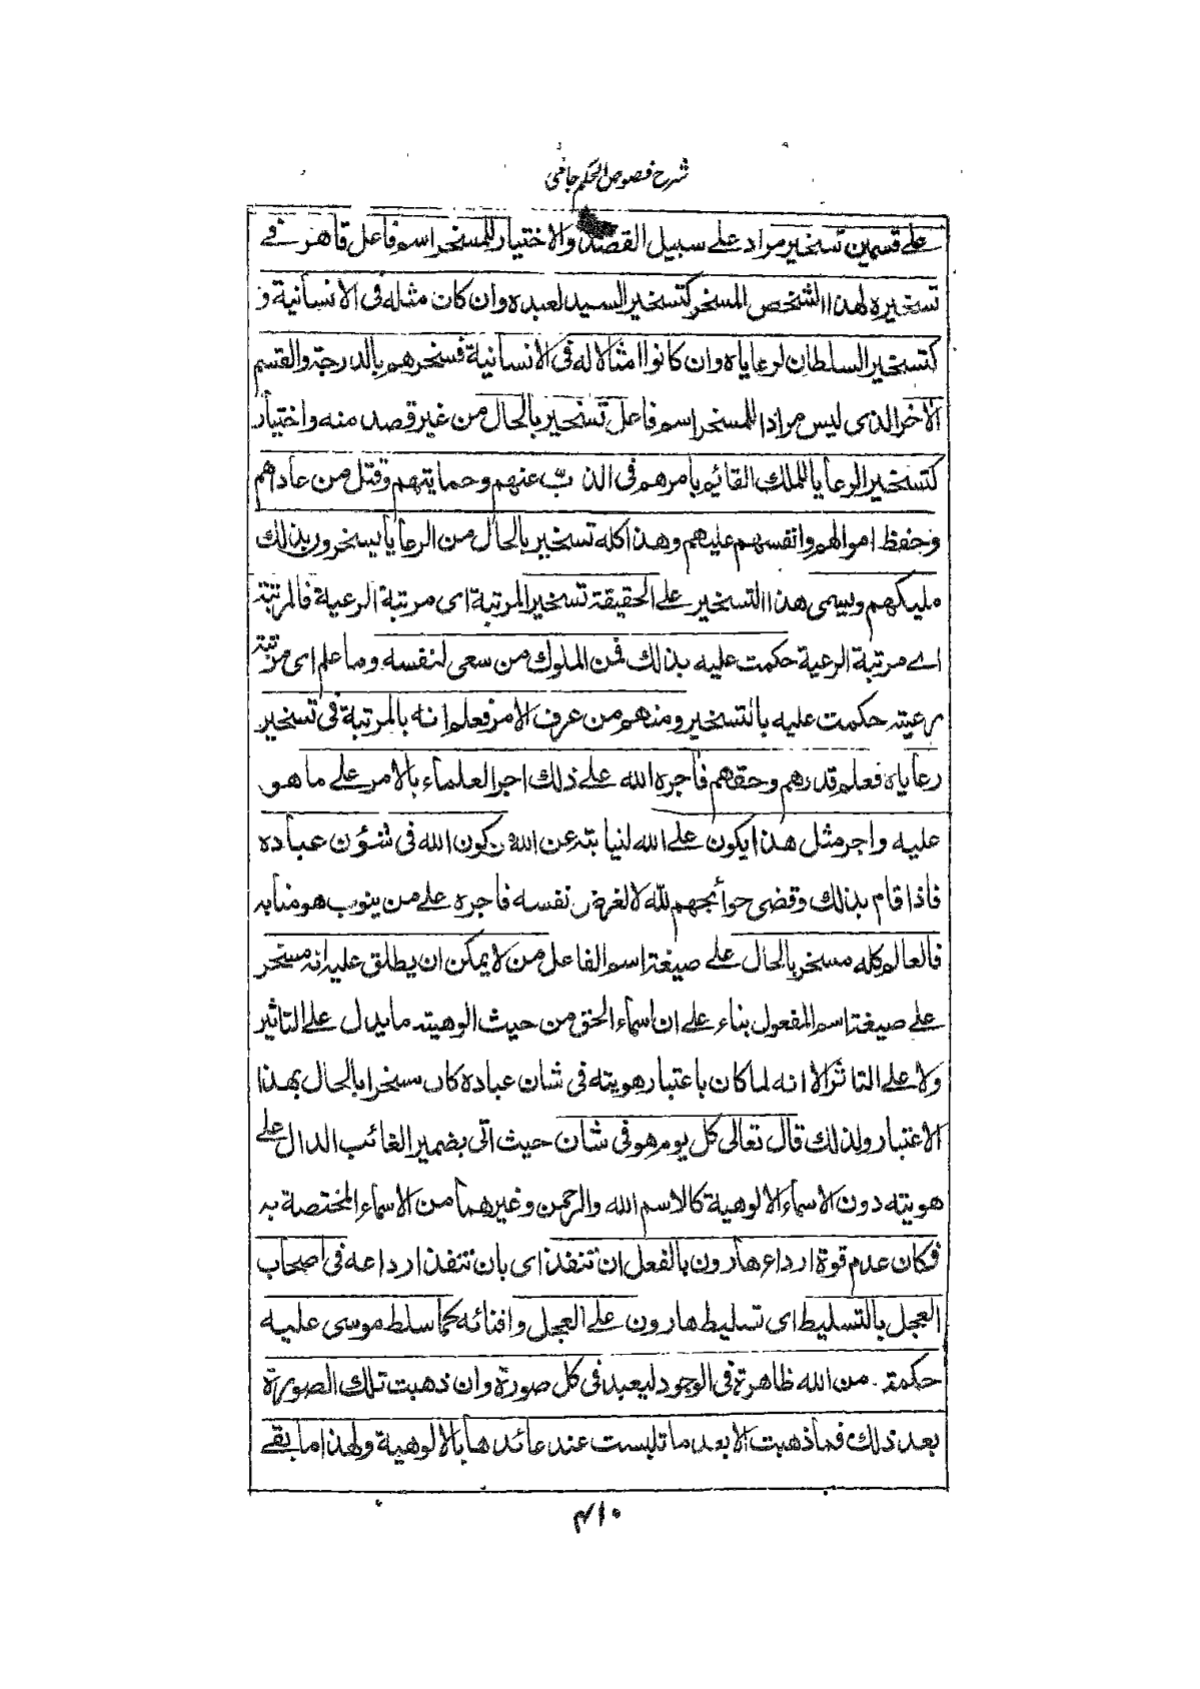 شرح فصوص الحکم جامی
علے قسمین تسخیر مراد علے سبیل القصد والاختیار للمسخر اسم فاعل قاهر فے
تسخیره لهذا الشخص المسخر کتسخیر السید لعبده وان کان مثله فی الانسانیة و
کتسخیر السلطان لرعایاه وان کانوا امثالا له فی الانسانیة فسخرهم بالدرجة والقسم
الاخر الذی لیس مرادا للمسخر اسم فاعل تسخیر بالحال من غیر قصد منه واختیار
کتسخیر الرعایا للملک القائم بامرهم فی الذبّ عنهم وحمایتهم وقتل من عاداهم
وحفظ اموالهم وانفسهم علیهم وهذا کله تسخیر بالحال من الرعایا یسخرون بذلک
ملیکهم ویسمی هذا التسخیر علے الحقیقة تسخیر المرتبة ای مرتبة الرعیة فالمرتبة
اے مرتبة الرعیة حکمت علیه بذلک فمن الملوک من سعی لنفسه وما علم ای مرتبة
رعیته حکمت علیه بالتسخیر ومنهم من عرف الامر فعلم انه بالمرتبة فی تسخیر
رعایاه فعلم قدرهم وحقهم فآجره الله علے ذلک اجر العلماء بالامر علے ما هو
علیه واجر مثل هذا یکون علے الله لنیابته عن الله کون الله فی شئون عباده
فاذا قام بذلک وقضی حوائجهم لله لا لغرض نفسه فاجره علے من ینوب هو منابه
فالعالم کله مسخر بالحال علے صیغة اسم الفاعل من لا یمکن ان یطلق علیه انه مسخر
علے صیغة اسم المفعول بناء علے ان اسماء الحق من حیث الوهیته ما یدل علے التاثیر
ولا علے التاثر الا انه لما کان باعتبار هویته فی شان عباده کان مسخرا بالحال بهذا
الاعتبار ولذلک قال تعالی کل یوم هو فی شان حیث اتی بضمیر الغائب الدال علے
هویته دون الاسماء الالوهیة کالاسم الله والرحمن وغیرهما من الاسماء المختصة به
فکان عدم قوة ارداع هارون بالفعل ان تنفذ ای بان تنفذ ارداعه فی اصحاب
العجل بالتسلیط ای تسلیط هارون علے العجل وافنائه کما سلط موسی علیه
حکمة من الله ظاهرة فی الوجود لیعبد فی کل صورة وان ذهبت تلک الصورة
بعد ذلک فما ذهبت الا بعد ما تلبست عند عابدها بالالوهیة ولهذا ما بقے
۳۱۰